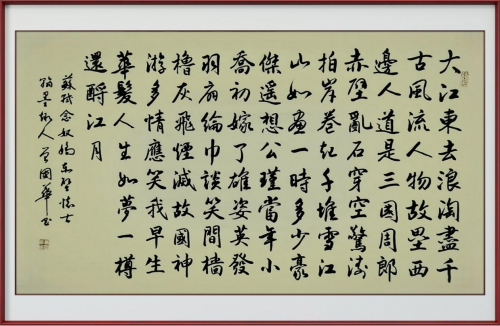 大江東去浪淘盡千
古風流人物故壘西
邊人道是三国周郎
赤壁亂石穿空驚涛
拍岸卷起千堆雪江
山如畫一時多少豪
傑遥想公瑾當年小
喬初嫁了雄姿英發
羽扇綸巾談笑間檣
櫓灰飛煙滅故國神
游多情應笑我早生
華髮人生如夢一樽
還酹江月
蘇軾念奴嬌赤壁懷古
翰墨人國華书